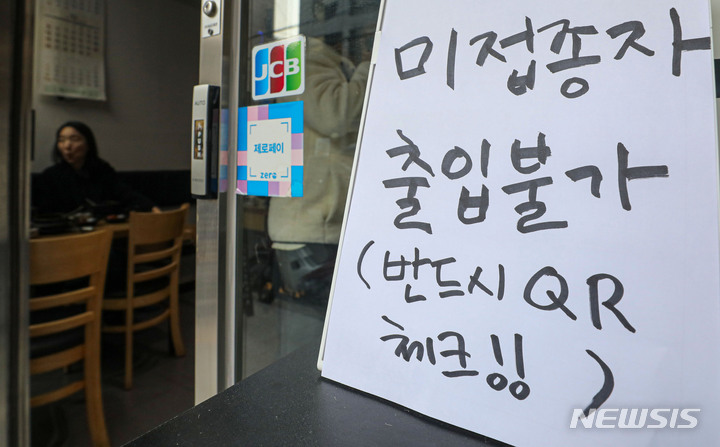 미접종자
출입불가
(반드시 QR
체크잉)
JCB
제로페이
zero
AUTO
NEWSIS